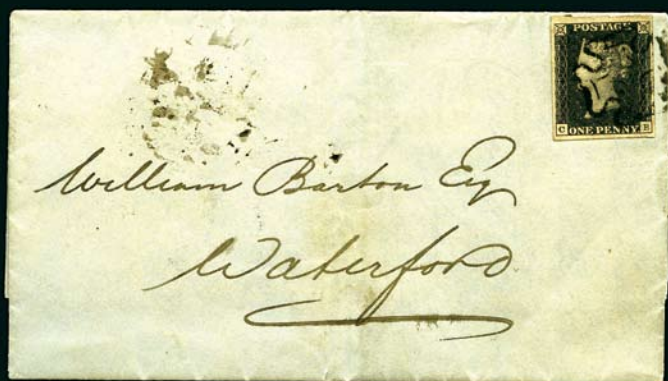 POSTAGE
C ONE PENNY E
William Barton Esq
Waterford